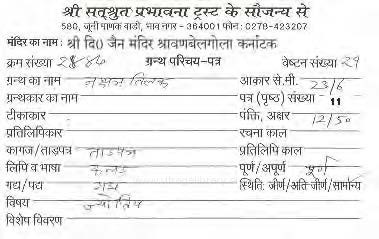 श्री सत्श्रुत प्रभावना ट्रस्ट के सौजन्य से
580, जूनी माणक वाडी, भाव नगर - 364001 फोन : 0278-423207
मंदिर का नाम : श्री दि0 जैन मंदिर श्रावणबेलगोला कर्नाटक
क्रम संख्या ग्रन्थ परिचय-पत्र वेष्टन संख्या 29
ग्रन्थ का नाम नक्षत्र तिलक आकार से.मी. 23/6
ग्रन्थकार का नाम पत्र (पृष्ठ) संख्या - 11
टीकाकार पंक्ति, अक्षर 12/50
प्रतिलिपिकार रचना काल
कागज/ताड़पत्र ताडपत्र प्रतिलिपि काल
लिपि व भाषा कन्नड पूर्ण/अपूर्ण पूर्ण
गद्य/पद्य गद्य स्थिति: जीर्ण/अति जीर्ण/सामान्य
विषय ज्योतिष
विशेष विवरण